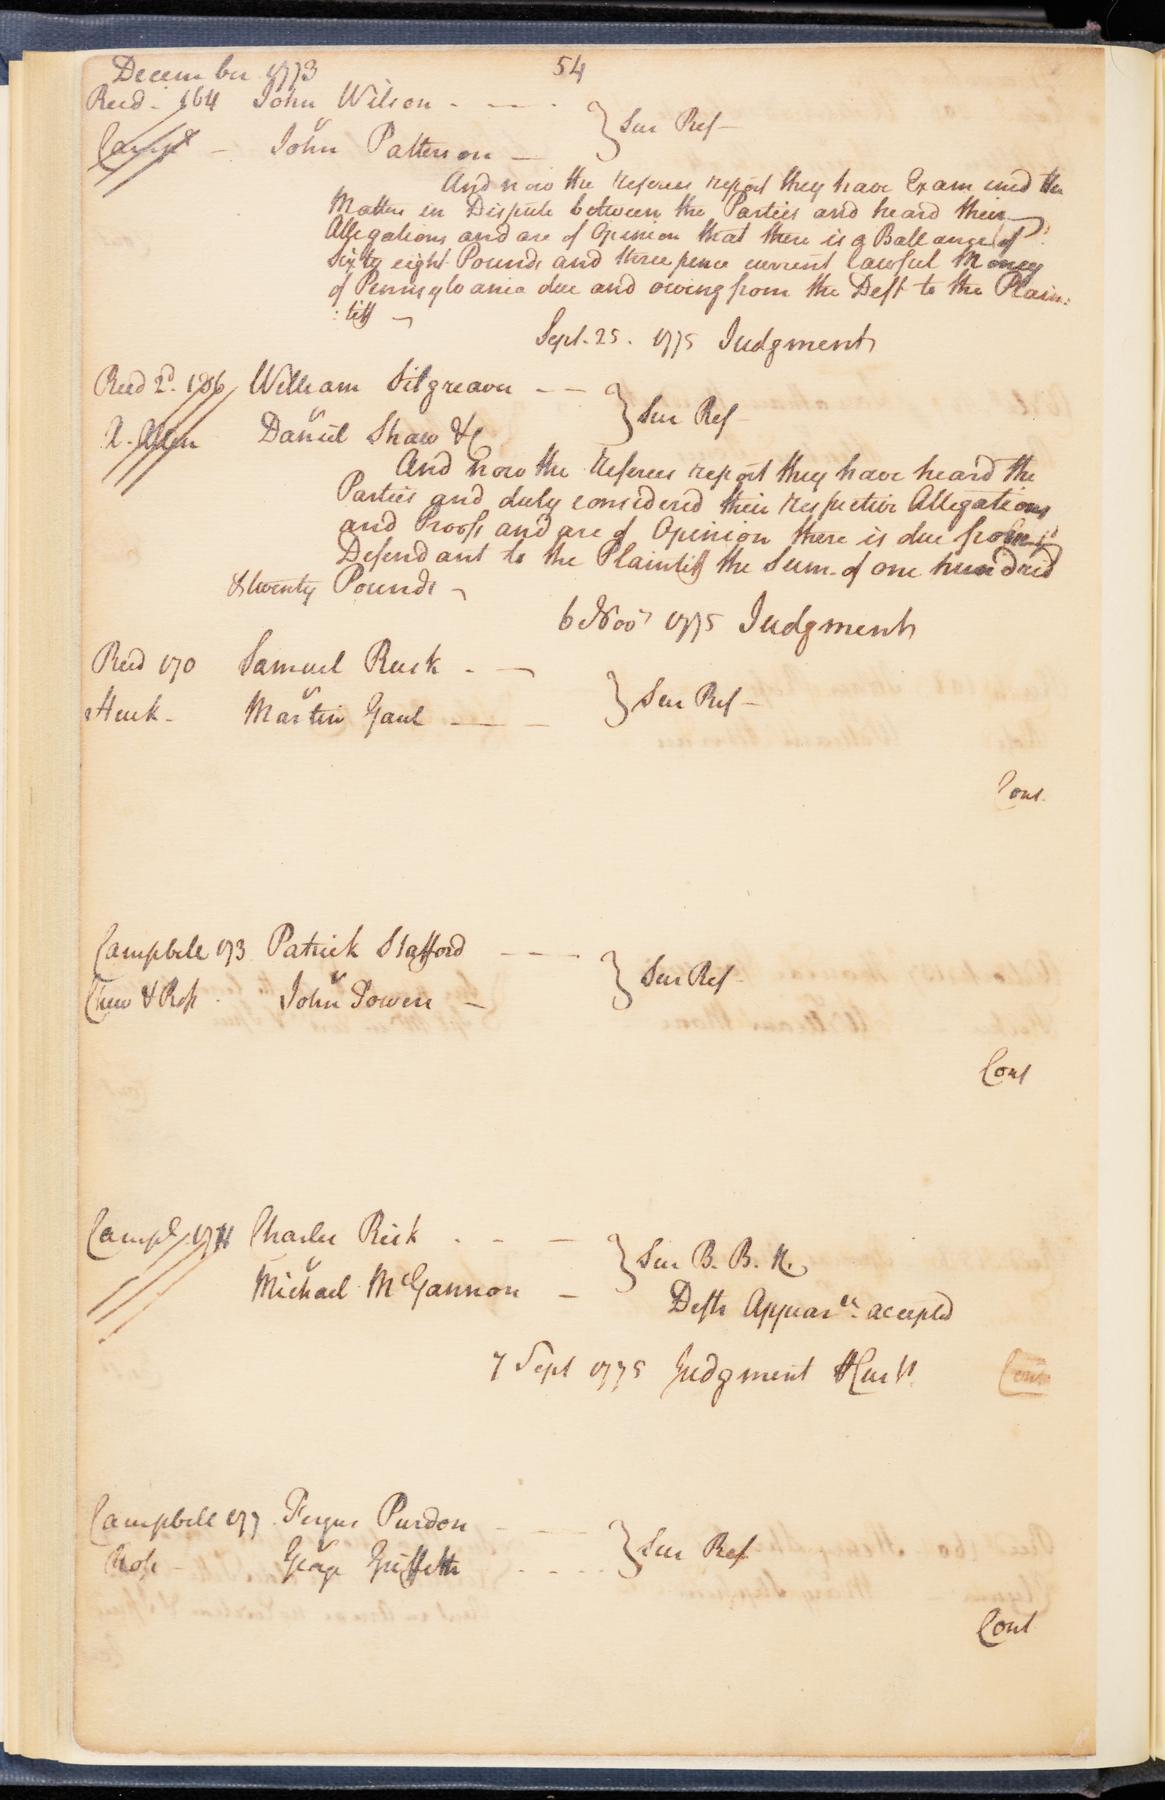 December 1773 54
Reed - 164 John Wilson - - - } Sur Ref -
v
Campl - John Patterson -
And now the referees report they have Examined the
Matter in Dispute between the Parties and heard their
Allegations and are of Opinion that there is a Ballance of
Sixty eight Pounds and three pence current lawful Money
of Pennsylvania due and owing from the Deft to the Plain:
:tiff
Sept. 25. 1775 Judgment
Reed 2d. 166 William Silgreaver - - } Sur Ref
v
A. Allen Daniel Shaw &c
And now the Referees report they have heard the
Parties and duly considered their respective Allegations
and Proofs and are of Opinion there is due from ye
Defendant to the Plaintiff the Sum of one hundred
& twenty Pounds
6 Novr 1775 Judgment
Reed 170 Samuel Rusk - - } Sur Ref -
v
Huck - Martin Gaul - - -
Cont.
Campbell 173 Patrick Stafford - - - } Sur Ref
v
Chew & Ross John Powen -
Cont
Campl 174 Charles Risk - - - } Sur B. B. R.
v
Michael McGannon -
Defts Appearce accepted
7 Sept 1775 Judgment
Cont
Campbell 177 Fergus Purdon - - - } Sur Ref
v
Ross - George Griffith - - - -
Cont